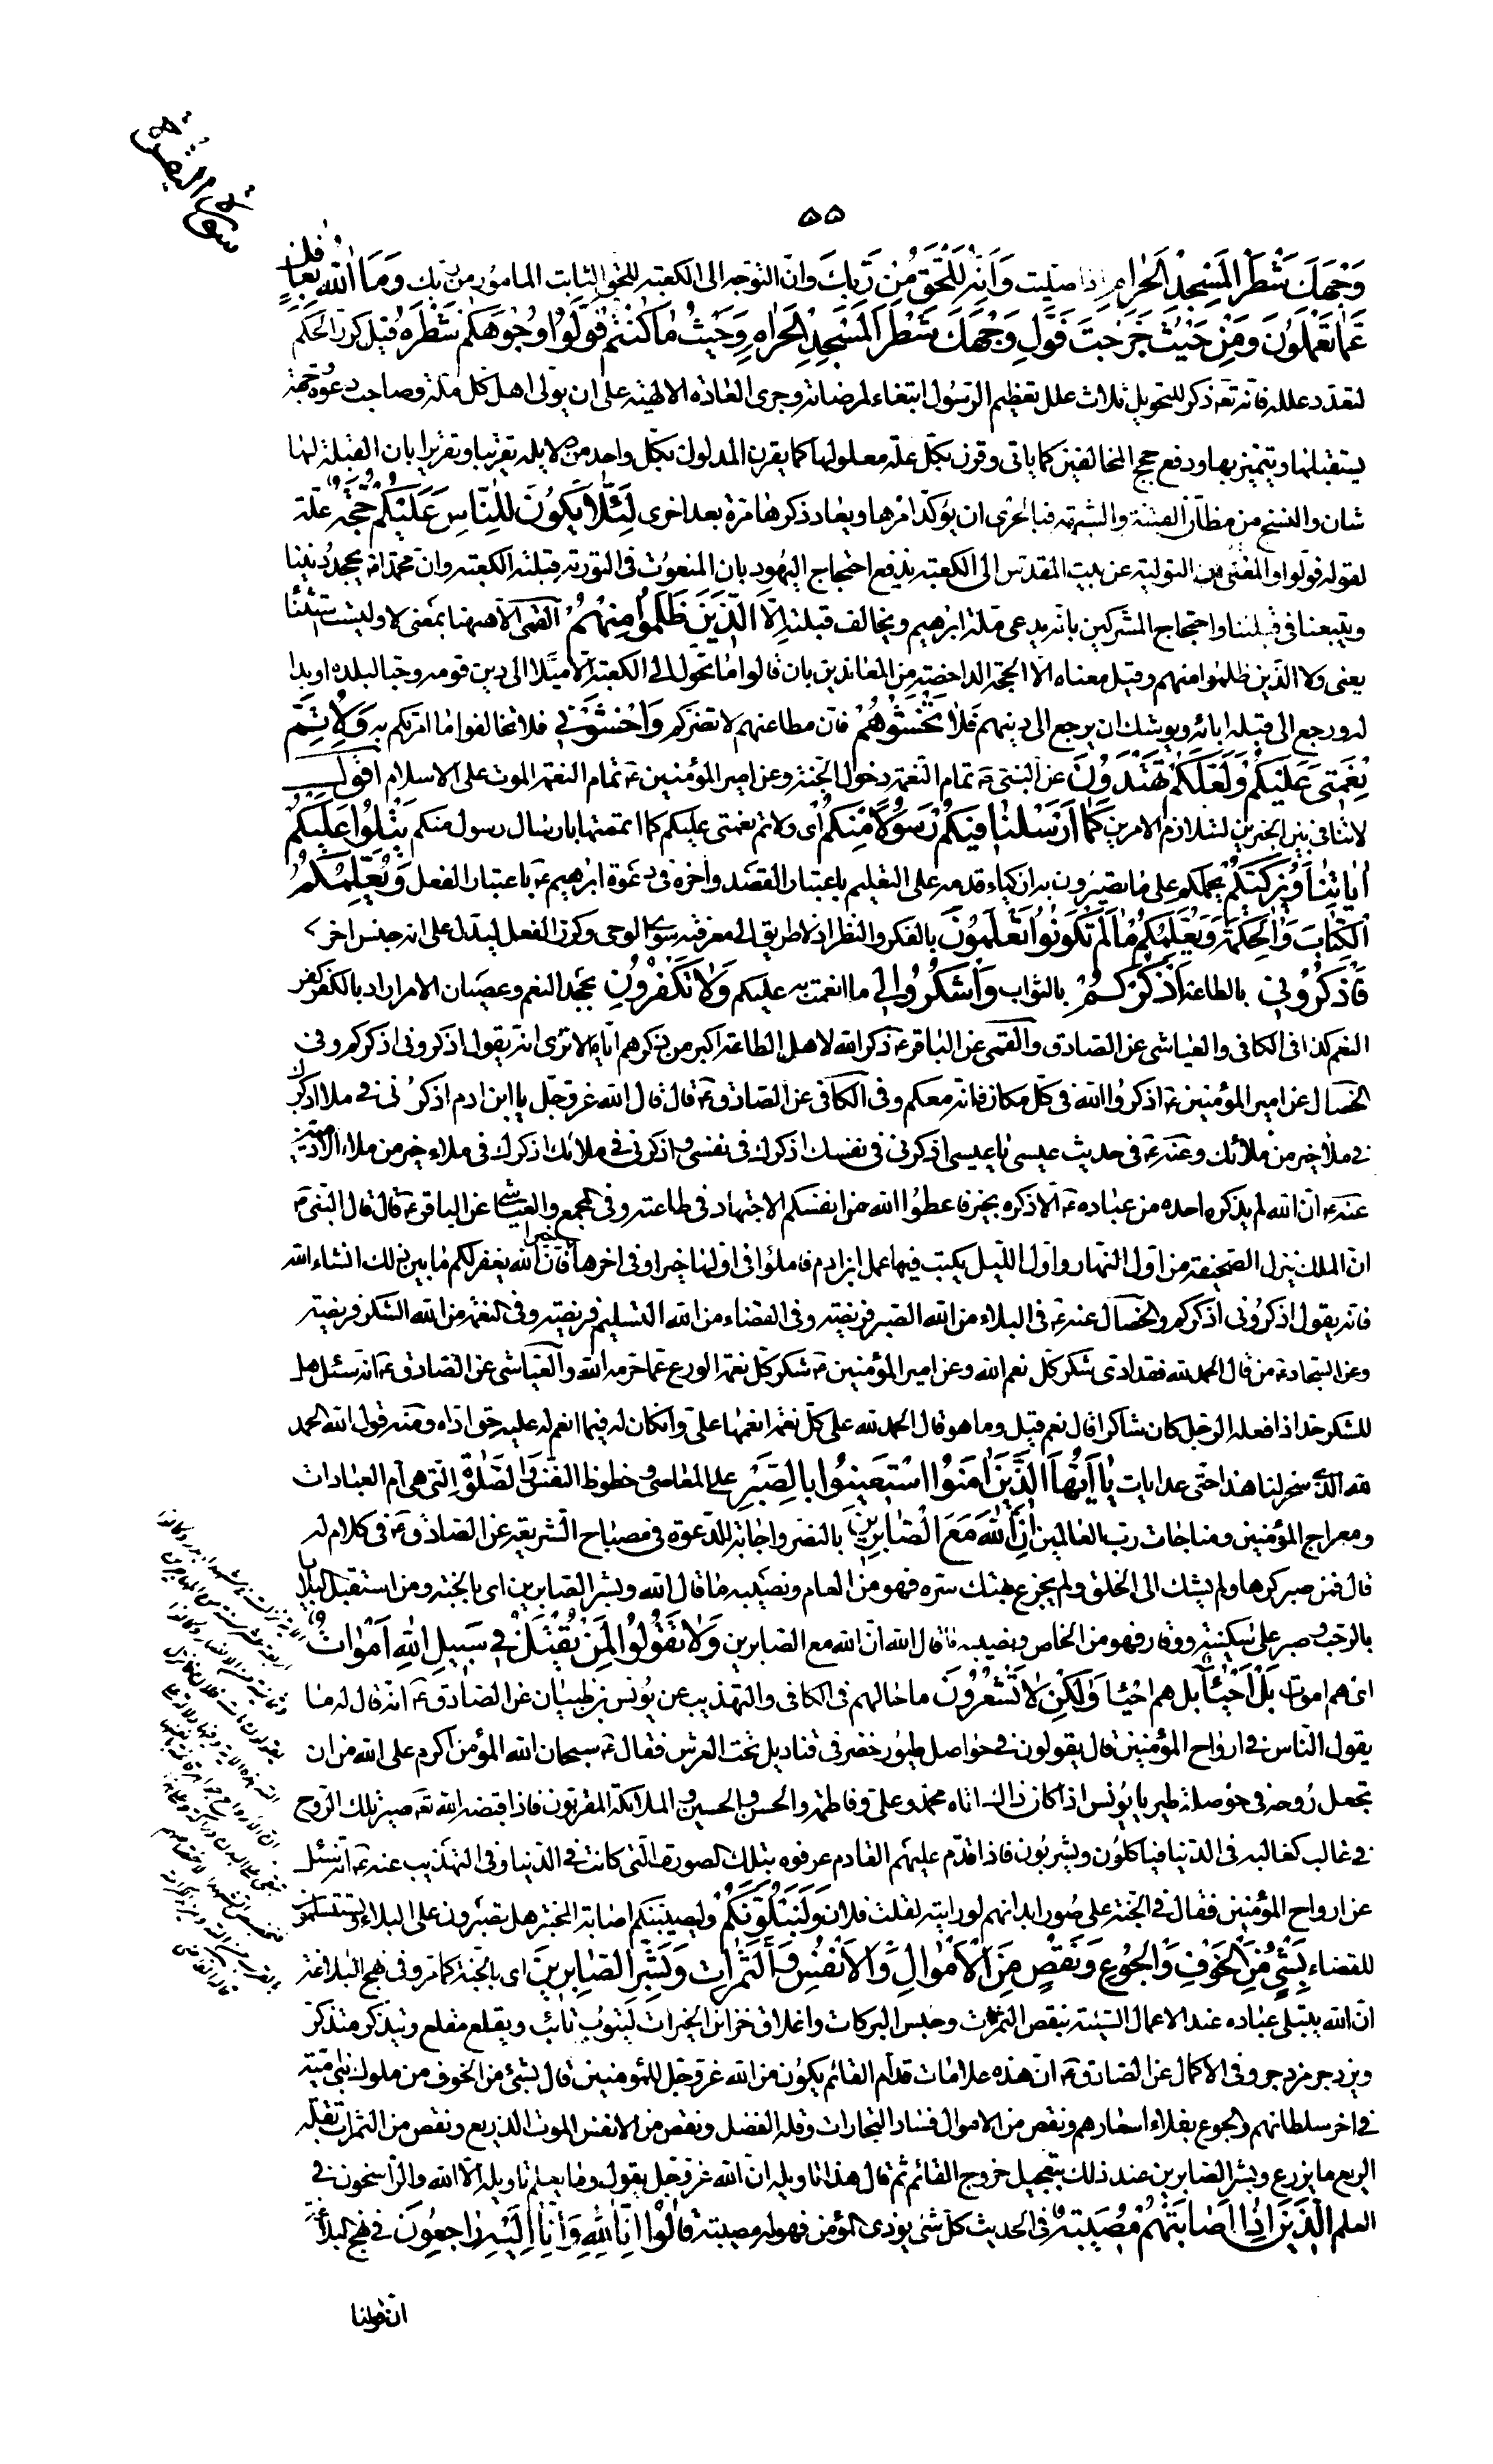 سورة البقرة
٥٥
وَجْهَكَ شَطْرَ الْمَسْجِدِ الْحَرَامِ اذا صليت وَاِنَّهُ لَلْحَقُّ مِنْ رَبِّكَ وانّ التوجّه الى الكعبة للحق الثابت المامور من ربك وَمَا اللَّهُ بِغَافِلٍ
عَمَّا تَعْمَلُونَ وَمِنْ حَيْثُ خَرَجْتَ فَوَلِّ وَجْهَكَ شَطْرَ الْمَسْجِدِ الْحَرَامِ وَحَيْثُ مَا كُنْتُمْ فَوَلُّوا وُجُوهَكُمْ شَطْرَهُ قيل كرر الحكم
لتعدد علله فانه تعه ذكر للتحويل ثلاث علل تعظيم الرسول ابتغاء لمرضاته وجرى العادة الالهية على ان يولى اهل كل ملة وصاحب دعوة جهة
يستقبلها ويتميز بها ودفع حجج المخالفين كما ياتى وقرن بكل علة معلولها كما يقرن المدلول بكل واحد من دلايله تقريبا وتقريرا بان القبلة لها
شان والنسخ من مظان الفتنة والشبهة فبالحرى ان يؤكد امرها ويعاد ذكرها مرة بعد اخرى لِئَلَّا يَكُونَ لِلنَّاسِ عَلَيْكُمْ حُجَّةٌ علة
لقوله فولوا والمعنى ان التولية عن بيت المقدس الى الكعبة يدفع احتجاج اليهود بان المنعوت فى التورية قبلته الكعبة وان محمدا ص يجحد ديننا
ويتبعنا فى قبلتنا واحتجاج المشركين بانه يدعى ملة ابرهيم ويخالف قبلته اِلَّا الَّذِينَ ظَلَمُوا مِنْهُمْ القمى الا ههنا بمعنى لا وليست استثناء
يعنى ولا الذين ظلموا منهم وقيل معناه الا الحجة الداحضة من المعاندين بان قالوا ما تحول الى الكعبة الا ميلا الى دين قومه وحبا لبلده او بدا
له ورجع الى قبلة ابائه ويوشك ان يرجع الى دينهم فَلَا تَخْشَوْهُمْ فان مطاعنهم لا تضركم وَاخْشَوْنِي فلا تخالفوا ما امرتكم به وَلِأُتِمَّ
نِعْمَتِي عَلَيْكُمْ وَلَعَلَّكُمْ تَهْتَدُونَ عن النبى ص تمام النعمة دخول الجنة وعن امير المؤمنين ع تمام النعمة الموت على الاسلام اقول
لا تنافى بين الخبرين لتلازم الامرين كَمَا اَرْسَلْنَا فِيكُمْ رَسُولًا مِنْكُمْ اى ولاتم نعمتى عليكم كما اتممتها بارسال رسول منكم يَتْلُوا عَلَيْكُمْ
اٰيَاتِنَا وَيُزَكِّيكُمْ يحملكم على ما تصيرون به ازكياء قدمه على التعليم باعتبار القصد واخره فى دعوة ابرهيم ع باعتبار الفعل وَيُعَلِّمُكُمُ
الْكِتَابَ وَالْحِكْمَةَ وَيُعَلِّمُكُمْ مَا لَمْ تَكُونُوا تَعْلَمُونَ بالفكر والنظر اذ لا طريق الى معرفته سوى الوحى وكرر الفعل ليدل على انه جنس اخر
فَاذْكُرُونِي بالطاعة اَذْكُرْكُمْ بالثواب وَاشْكُرُوا لِي ما انعمت به عليكم وَلَا تَكْفُرُونِ بجحد النعم وعصيان الامر اراد بالكفر كفر
النعم كذا فى الكافى والعياشى عن الصادق ع والقمى عن الباقر ع ذكر الله لاهل الطاعة اكبر من ذكرهم اياه الا ترى انه يقول اذكرونى اذكركم وفى
الخصال عن امير المؤمنين ع اذكروا الله فى كل مكان فانه معكم وفى الكافى عن الصادق ع قال قال الله عز وجل يا ابن ادم اذكرنى فى ملا اذكرك
فى ملا خير من ملائك وعنه ع فى حديث عيسى يا عيسى اذكرنى فى نفسك اذكرك فى نفسى واذكرنى فى ملائك اذكرك فى ملاء خير من ملاء الادميين
عنه ع ان الله لم يذكره احد من عباده ع الا ذكره بخير فاعطوا الله من انفسكم الاجتهاد فى طاعته وفى المجمع والعياشى عن الباقر ع قال قال النبى ص
ان الملك ينزل الصحيفة من اول النهار واول الليل يكتب فيها عمل ابن ادم فاملوا فى اولها خيرا وفى اخرها خيرا فان الله يغفر لكم ما بين ذلك انشاء الله
فانه يقول اذكرونى اذكركم والخصال عنه ع فى البلاء من الله الصبر فريضة وفى القضاء من الله التسليم فريضة وفى النعمة من الله الشكر فريضة
وعن السجاد ع من قال الحمد لله فقد ادى شكر كل نعم الله وعن امير المؤمنين ع شكر كل نعمة الورع عما حرمه الله والعياشى عن الصادق ع انه سئل هل
للشكر حد اذا فعله الرجل كان شاكرا قال نعم قيل وما هو قال الحمد لله على كل نعمة انعمها على وان كان له فيما انعم له عليه حق اداه ومنه قول الله الحمد
لله الذى سخر لنا هذا حتى عد ايات يَا اَيُّهَا الَّذِينَ اٰمَنُوا اسْتَعِينُوا بِالصَّبْرِ على المعاصى وحظوظ النفس وَالصَّلٰوةِ التى هى ام العبادات
ومعراج المؤمنين ومناجات رب العالمين اِنَّ اللَّهَ مَعَ الصَّابِرِينَ بالنصر واجابة الدعوة فى مصباح الشريعة عن الصادق ع فى كلام له
قال فمن صبر كرها ولم يشك الى الخلق ولم يجزع بهتك ستره فهو من العام ونصيبه ما قال الله وبشر الصابرين اى بالجنة ومن استقبل البلايا
بالرحب وصبر على سكينة ووقار فهو من الخاص ونصيبه ما قال الله ان الله مع الصابرين وَلَا تَقُولُوا لِمَنْ يُقْتَلُ فِي سَبِيلِ اللَّهِ اَمْوَاتٌ
اى هم اموات بَلْ اَحْيَاءٌ بل هم احيا وَلٰكِنْ لَا تَشْعُرُونَ ما حالهم فى الكافى والتهذيب عن يونس بن ظبيان عن الصادق ع انه قال له ما
يقول الناس فى ارواح المؤمنين قال يقولون فى حواصل طيور خضر فى قناديل تحت العرش فقال ع سبحان الله المؤمن اكرم على الله من ان
تجعل روحه فى حوصلة طير يا يونس اذا كان ذلك اتاه محمد وعلى وفاطمة والحسن والحسين والملائكة المقربون فاذا قبضه الله تعه صير تلك الروح
فى قالب كقالبه فى الدنيا فياكلون ويشربون فاذا قدم عليهم القادم عرفوه بتلك الصورة التى كانت فى الدنيا وفى التهذيب عنه ع انه سئل
عن ارواح المؤمنين فقال فى الجنة على صور ابدانهم لو رايته لقلت فلان وَلَنَبْلُوَنَّكُمْ ولنصيبنكم اصابة المختبر هل تصبرون على البلاء وتستسلمون
للقضاء بِشَيْءٍ مِنَ الْخَوْفِ وَالْجُوعِ وَنَقْصٍ مِنَ الْاَمْوَالِ وَالْاَنْفُسِ وَالثَّمَرَاتِ وَبَشِّرِ الصَّابِرِينَ اى بالجنة كما مر وفى نهج البلاغة
ان الله يبتلى عباده عند الاعمال السيئة بنقص الثمرات وحبس البركات واغلاق خزاين الخيرات ليتوب تائب ويقلع مقلع ويتذكر متذكر
ويزدجر مزدجر وفى الاكمال عن الصادق ع ان هذه علامات قدام القائم يكون من الله عز وجل للمؤمنين قال بشئ من الخوف من ملوك بنى امية
فى اخر سلطانهم والجوع بغلاء اسعارهم ونقص من الاموال فساد التجارات وقلة الفضل ونقص من الانفس الموت الذريع ونقص من الثمرات بقلة
الريع ما يزرع وبشر الصابرين عند ذلك بتعجيل خروج القائم ثم قال هذا تاويله ان الله عز وجل يقول وما يعلم تاويله الا الله والراسخون فى
العلم الَّذِينَ اِذَا اَصَابَتْهُمْ مُصِيبَةٌ فى الحديث كل شئ يوذى المؤمن فهو له مصيبة قَالُوا اِنَّا لِلَّهِ وَاِنَّا اِلَيْهِ رَاجِعُونَ فى نهج البلاغة
ان قولنا